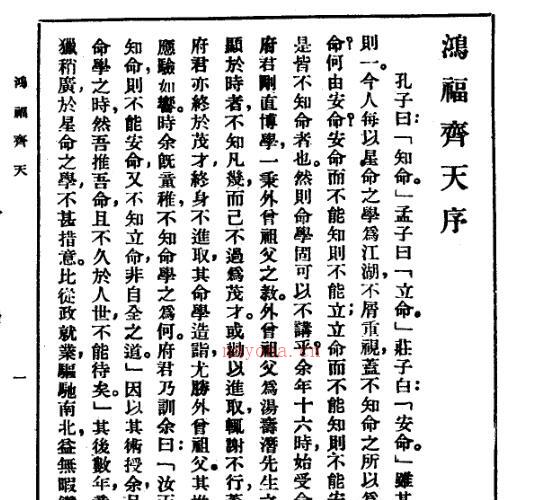 鴻福齊天序
孔子曰:「知命。」孟子曰「立命。」莊子白:「安命。」雖其
則一。今人每以星命之學爲江湖,不屑重視,蓋不知命之所以
命?何由安命?安命而不能知則不能立;立命而不能知則不能安
是皆不知命者也。然則命學固可以不講乎?余年十六時,始受命
府君剛直博學,一秉外曾祖父之教。外曾祖父爲湯壽潛先生之
顯於時者,不知凡幾,而己不過爲茂才。或勸以進取,輒謝不行,
府君亦終於茂才,終身不進取,其命學造詣,尤勝外曾祖父。其
應驗如響。時余既童稚,不知命學之爲何。府君乃訓余曰:「汝不
知命,則不能安命,又不知立命,非自全之道。」因以其術授余,
命學之時,然吾推吾命,且不久於人世,不能待矣。」其後數年,
獵稍廣,於星命之學,不甚措意。比從政就業,驅馳南北,益無暇
鴻福齊天
一